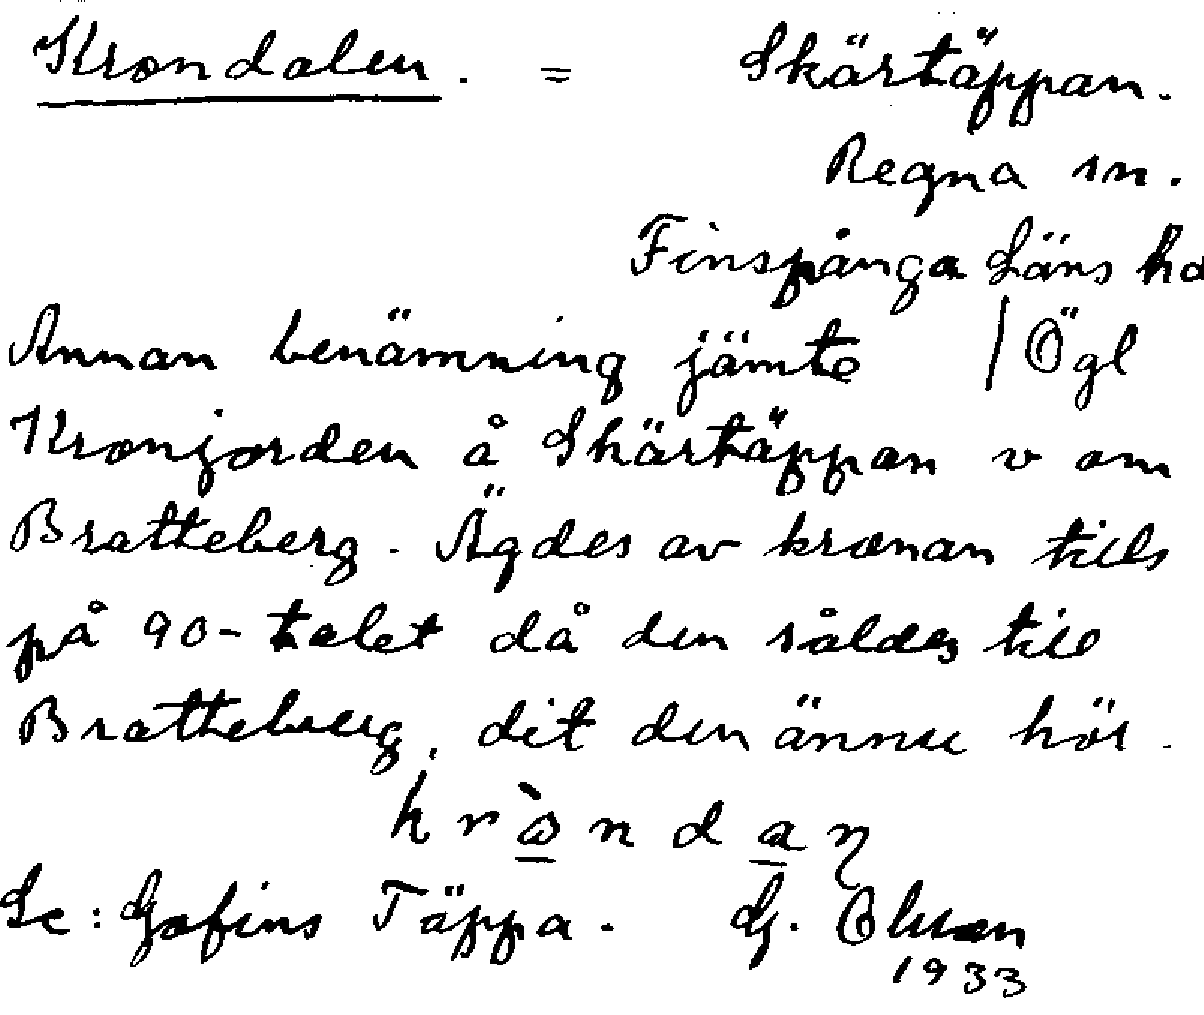 Krondalen. = Skärtäppan.
Regna sn.
Finspånga Läns hd
Annan benämning jämte / Ögl
Kronjorden å Skärtäppan v om
Bratteberg. Ägdes av kronan tills
på 90-talet då den såldes till
Bratteberg, dit den ännu hör.
krò̱nda̱ŋ
Se: Gofins Täppa. G. Olson
1933